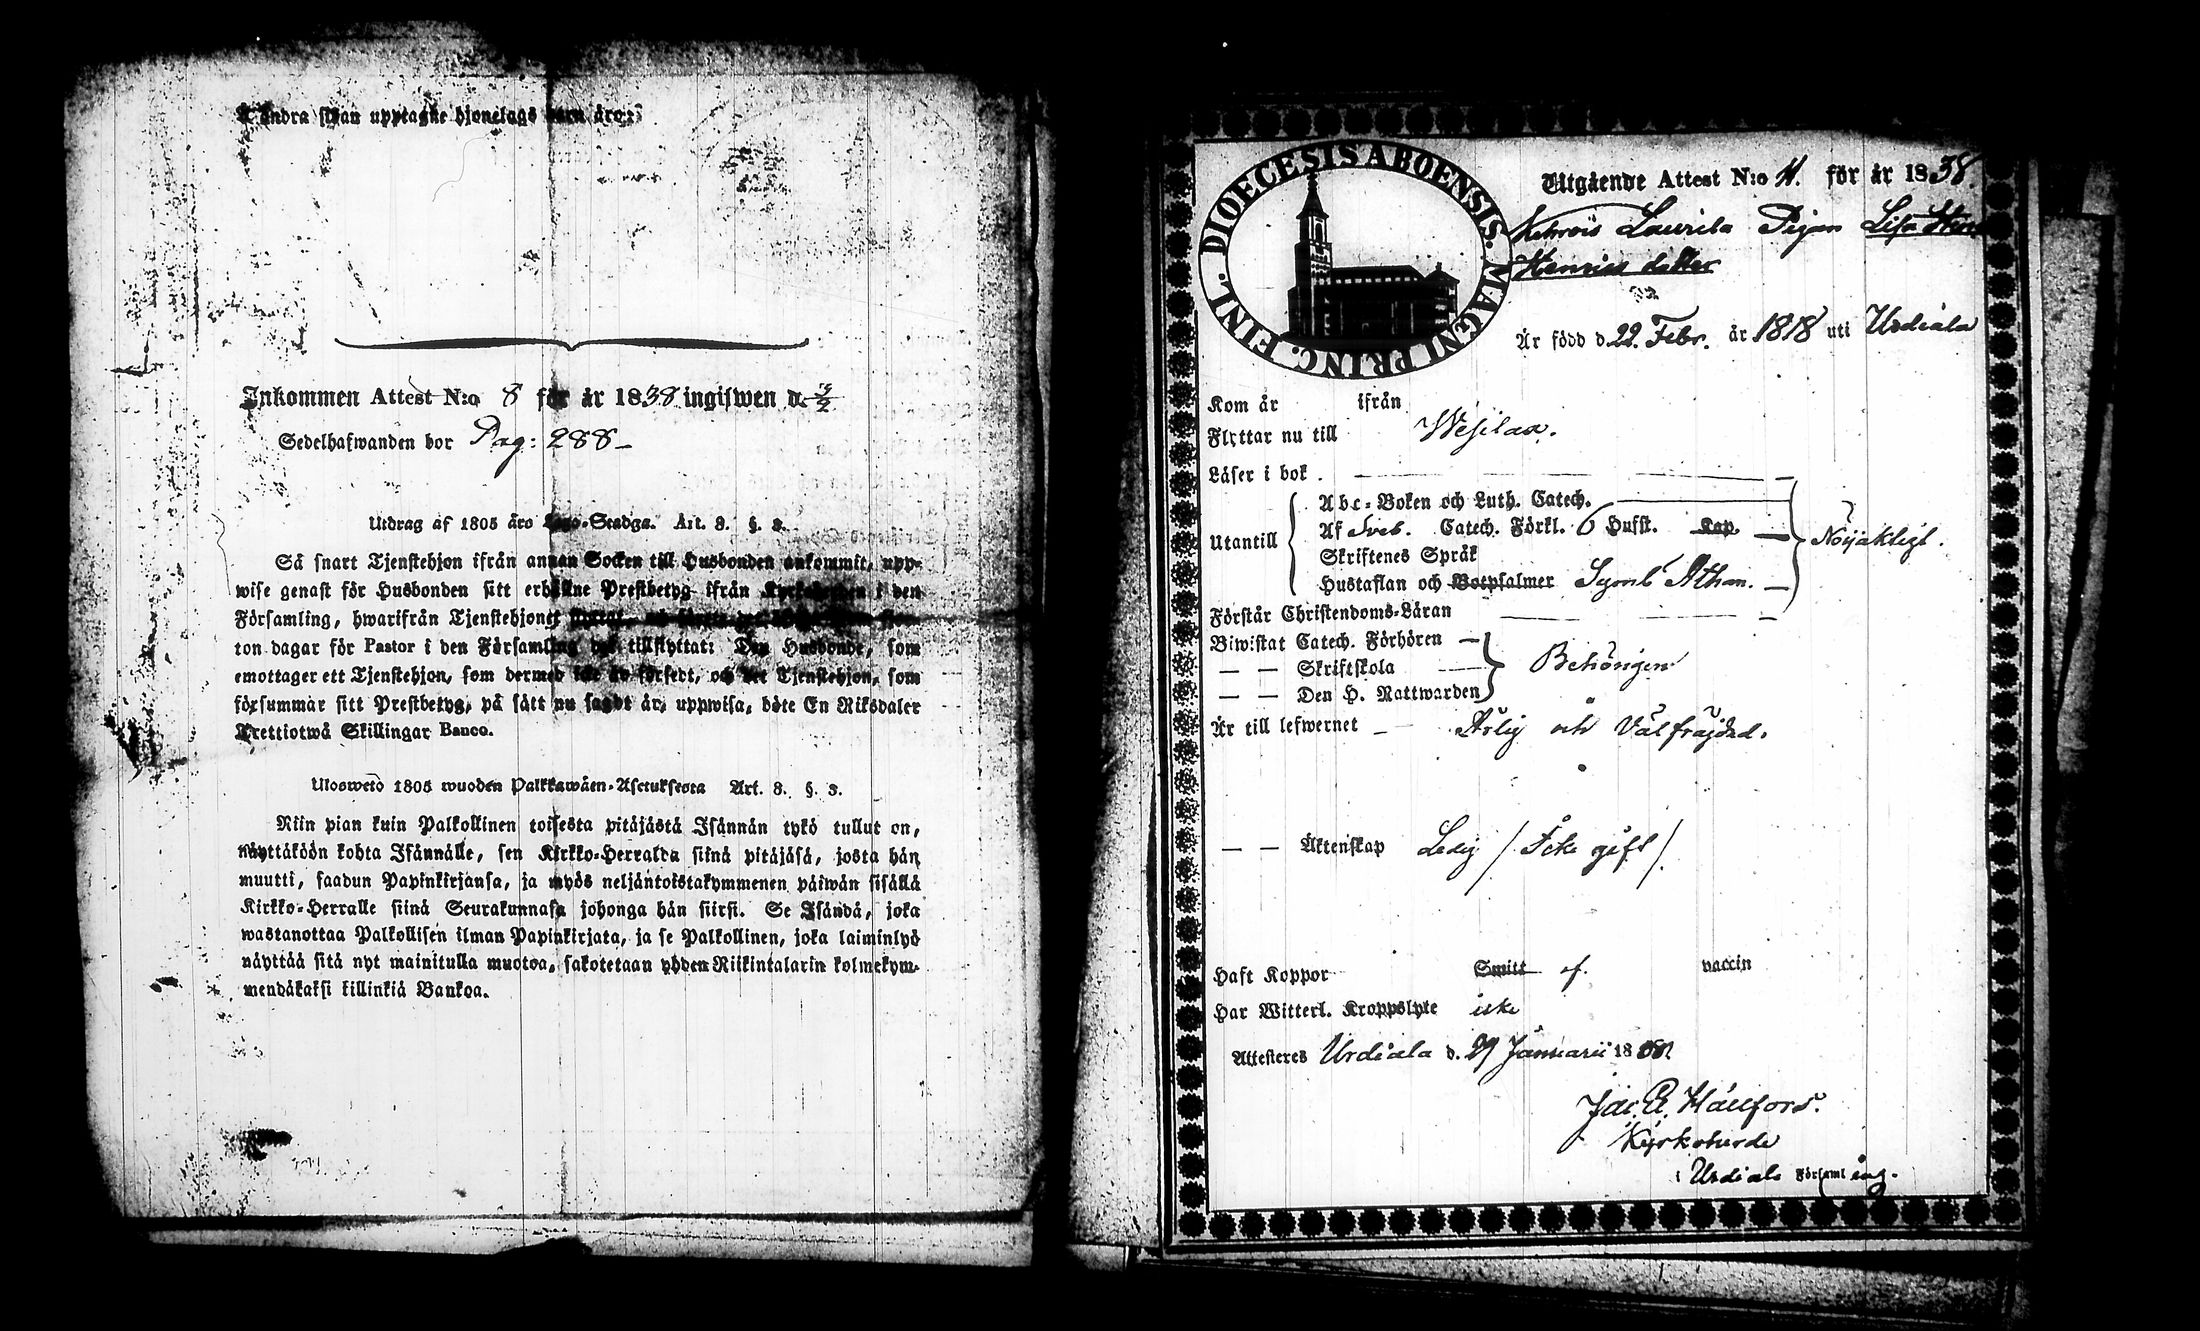 Å andra sidan upptagne hjonelags barn äro:
Inkommen Attest N:o 8 för år 1838 ingifwen d. 3/2
Sedelhafwanden bor Pag: 288-
Utdrag af 1805 års Lego-Stadga. Art. 8. §. 3.
Så snart Tjenstehjon ifrån annan Socken till Husbonden ankommit, upp-
wise genast för Husbonden sitt erhållne Prestbetyg ifrån Kyrkoherden i den
Församling, hwarifrån Tjenstehjonet
ton dagar för Pastor i den Församling dit tillflyttat: Den Husbonde, som
emottager ett Tjenstehjon, som dermed icke är försedt, och det Tjenstehjon, som
försummar sitt Prestbetyg, på sätt nu sagdt är, uppwisa, böte En Riksdaler
Trettiotwå Skillingar Banco.
Uloswetö 1805 wuoden Palkkawäen-Asetuksesta Art. 8. §. 3.
Niin pian kuin Palkollinen toisesta pitäjästä Isännän tykö tullut on,
näyttäköön kohta Isännälle, sen Kirkko-Herralda siinä pitäjäsä, josta hän
muutti, saadun Papinkirjansa, ja myös neljäntoistakymmenen päiwän sisällä
Kirkko-Herralle siinä Seurakunnasa johonga hän siirsi. Se Isändä, joka
wastanottaa Palkollisen ilman Papinkirjata, ja se Palkollinen, joka laiminlyö
näyttää sitä nyt mainitulla muotoa, sakotetaan yhden Riikintalarin kolmekym-
mendäkaksi killinkiä Bankoa.
DIOECESIS ABOENSIS. MAGNI PRINC. FINL.
Utgående Attest N:o 4. för år 1838.
Laurila Pigan Lisa Stina
Henrics dotter
Är född d. 22. Febr. år 1818 uti Urdiala
Kom år ifrån
Flyttar nu till Wesilax.
Läser i bok
Utantill
Abc-Boken och Luth. Catech.
Af Sveb. Catech. Förkl. 6 Hufst. Kap.
Skriftenes Språk
Hustaflan och Botpsalmer Symb Athan.
Nöijaktigt.
Förstår Christendoms-Läran
Biwistat Catech. Förhören
— — Skriftskola
— — Den H. Nattwarden
Behörigen
Är till lefwernet Ärlig och Välfrägdad.
— — Äktenskap Ledig / Icke gift /.
Haft Koppor Smitt af. vaccin
Har Witterl. Kroppslyte icke
Attesteres Urdiala d. 29 Januarii 1838
Jac. E. Hällfors.
Kyrkoherde
i Urdiala Församling.